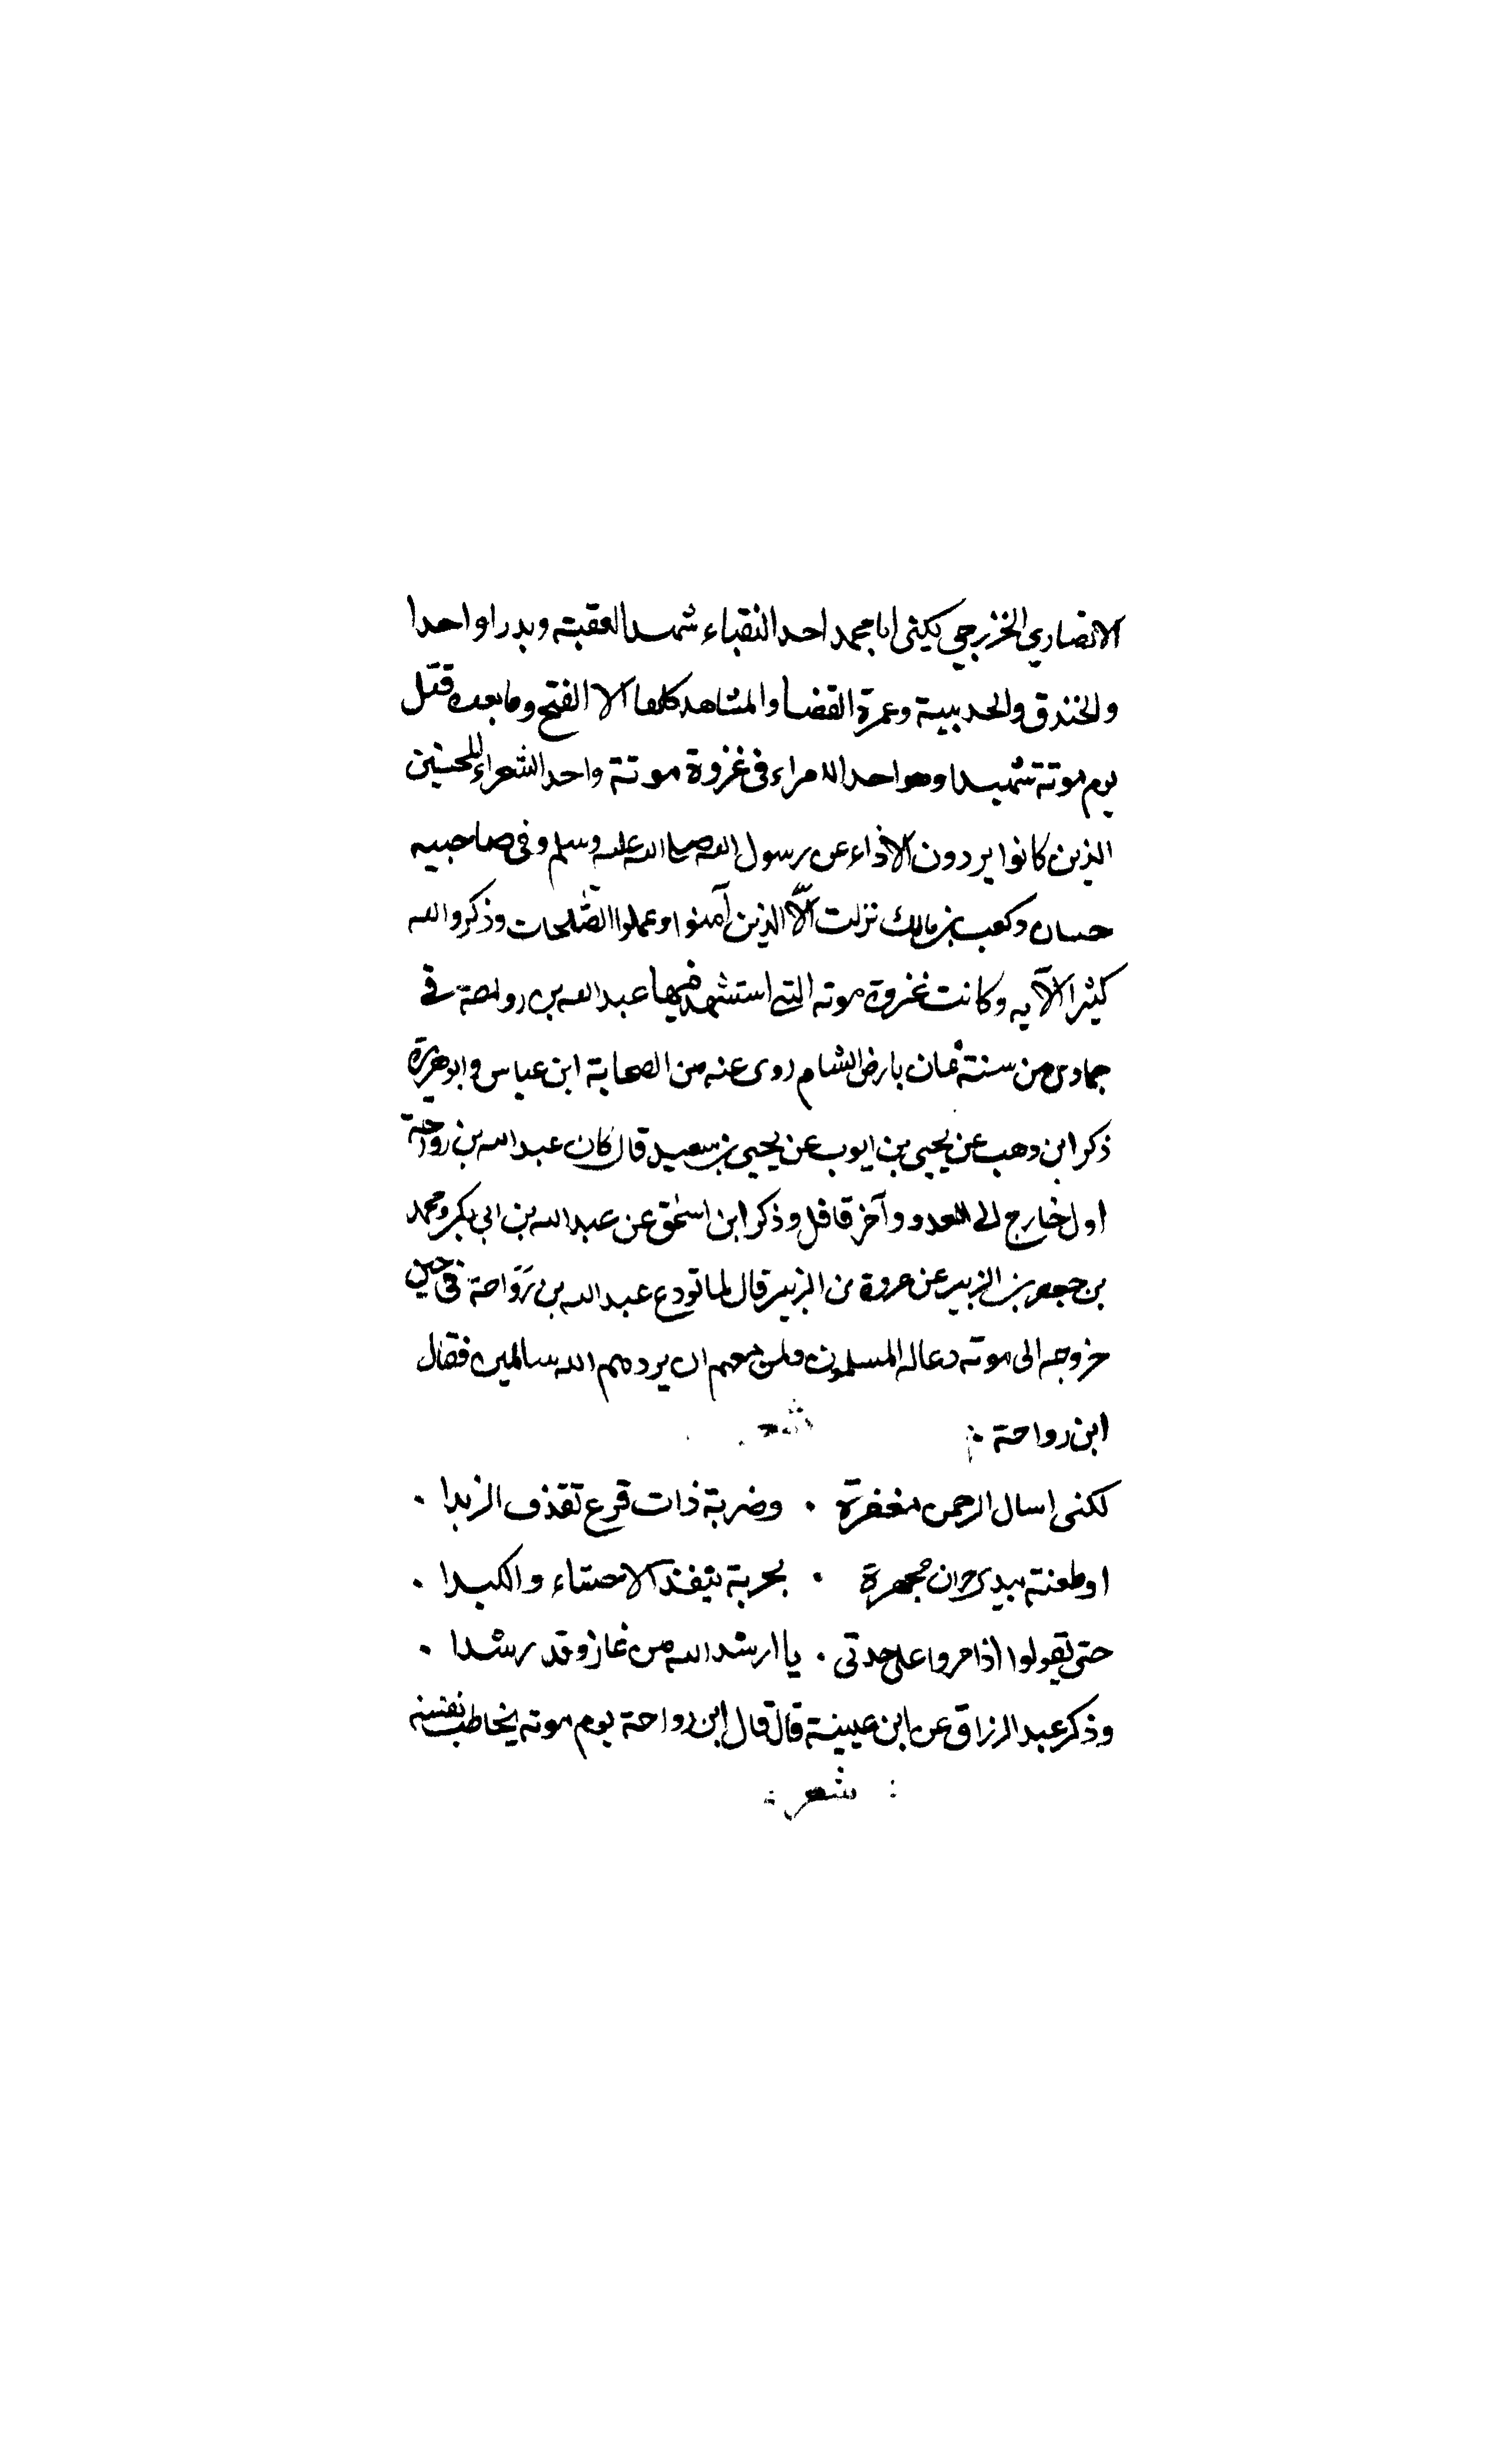 الانصاري الخزرجي يكنى ابا محمد احد النقباء شهد العقبة وبدرا واحدا
والخندق والحديبية وعمرة القضا والمشاهد كلها الا الفتح وما بعده قتل
يوم موتة شهيدا وهو احد الامراء في غزوة موتة واحد الشعراء المحسنين
الذين كانوا يردون الاذاء عن رسول الله صلى الله عليه وسلم وفي صاحبيه
حسان وكعب بن مالك نزلت الّا الذين آمنوا وعملوا الصّٰلحات وذكروا الله
كثيرا الآيه وكانت غزوة موته التي استشهد فيها عبد الله بن رواحة في
جمادى من سنة ثمان بارض الشام روى عنه من الصحابة ابن عباس وابو هريرة
ذكر ابن وهب عن يحيى بن ايوب عن يحيى بن سعيد قال كان عبد الله بن رواحة
اول خارج الى العدو وآخر قافل وذكر ابن اسحٰق عن عبد الله بن ابي بكر ومحمد
بن جعفر بن الزبير عن عروة بن الزبير قال لما تودع عبد الله بن رَوَاحة في حين
خروجه الى موته دعا له المسلمون ولمن معهم ان يردهم الله سالمين فقال
ابن رواحة : شعر
لكنى اسال الرحمن مغفرة . وضربة ذات قرع تقذف الزبدا .
او طعنة بيدي حران مجهرة . بحربة تنفذ الاحشاء والكبدا .
حتى يقولوا اذا مروا على جدتى . يا ارشد الله من غاز وقد رشدا .
وذكر عبد الرزاق عن ابن عيينة قال قال ابن رواحة يوم موته يخاطب نفسه
: شعر :